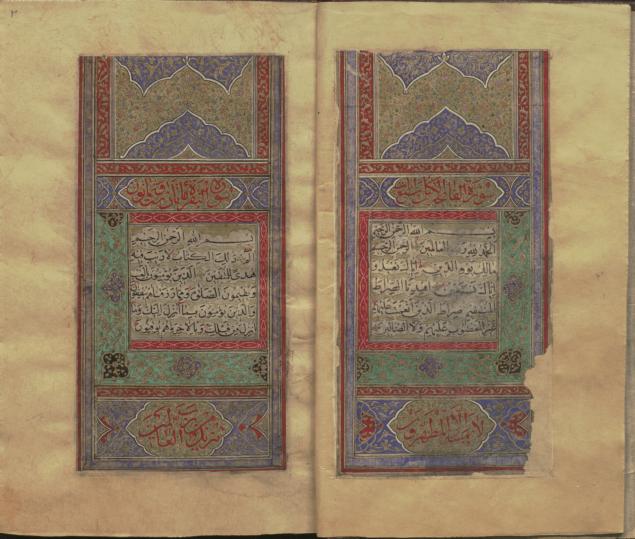 سورة الفاتحة
بسم الله الرحمن الرحيم
الحمد لله رب العالمين الرحمن الرحيم
مالك يوم الدين اياك نعبد و
اياك نستعين اهدنا الصراط
المستقيم صراط الذين انعمت عليهم
غير المغضوب عليهم ولا الضالين
لا يمسه الا المطهرون
٢
سورة البقرة مايتان وثمانون
بسم الله الرحمن الرحيم
الم ذلك الكتاب لا ريب فيه
هدى للمتقين الذين يؤمنون بالغيب
ويقيمون الصلوة ومما رزقناهم ينفقون
والذين يؤمنون بما انزل اليك وما
انزل من قبلك وبالاخرة هم يوقنون
تنزيل من رب العالمين